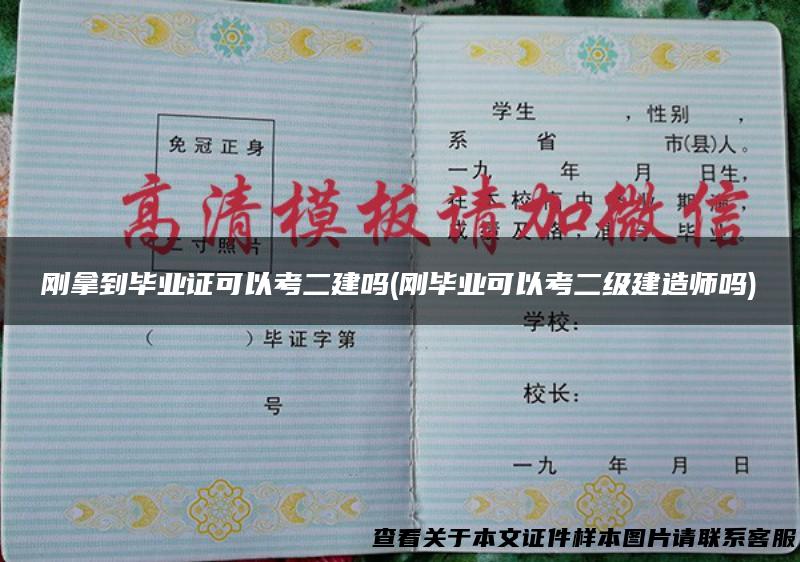 免冠正身
二寸照片
(            )毕证字第
号
学生          ，性别      ，
系        省              市(县)人。
一九      年      月      日生，
高清模板请加微信
刚拿到毕业证可以考二建吗(刚毕业可以考二级建造师吗)
学校：
校长：
一九    年    月    日
查看关于本文证件样本图片请联系客服